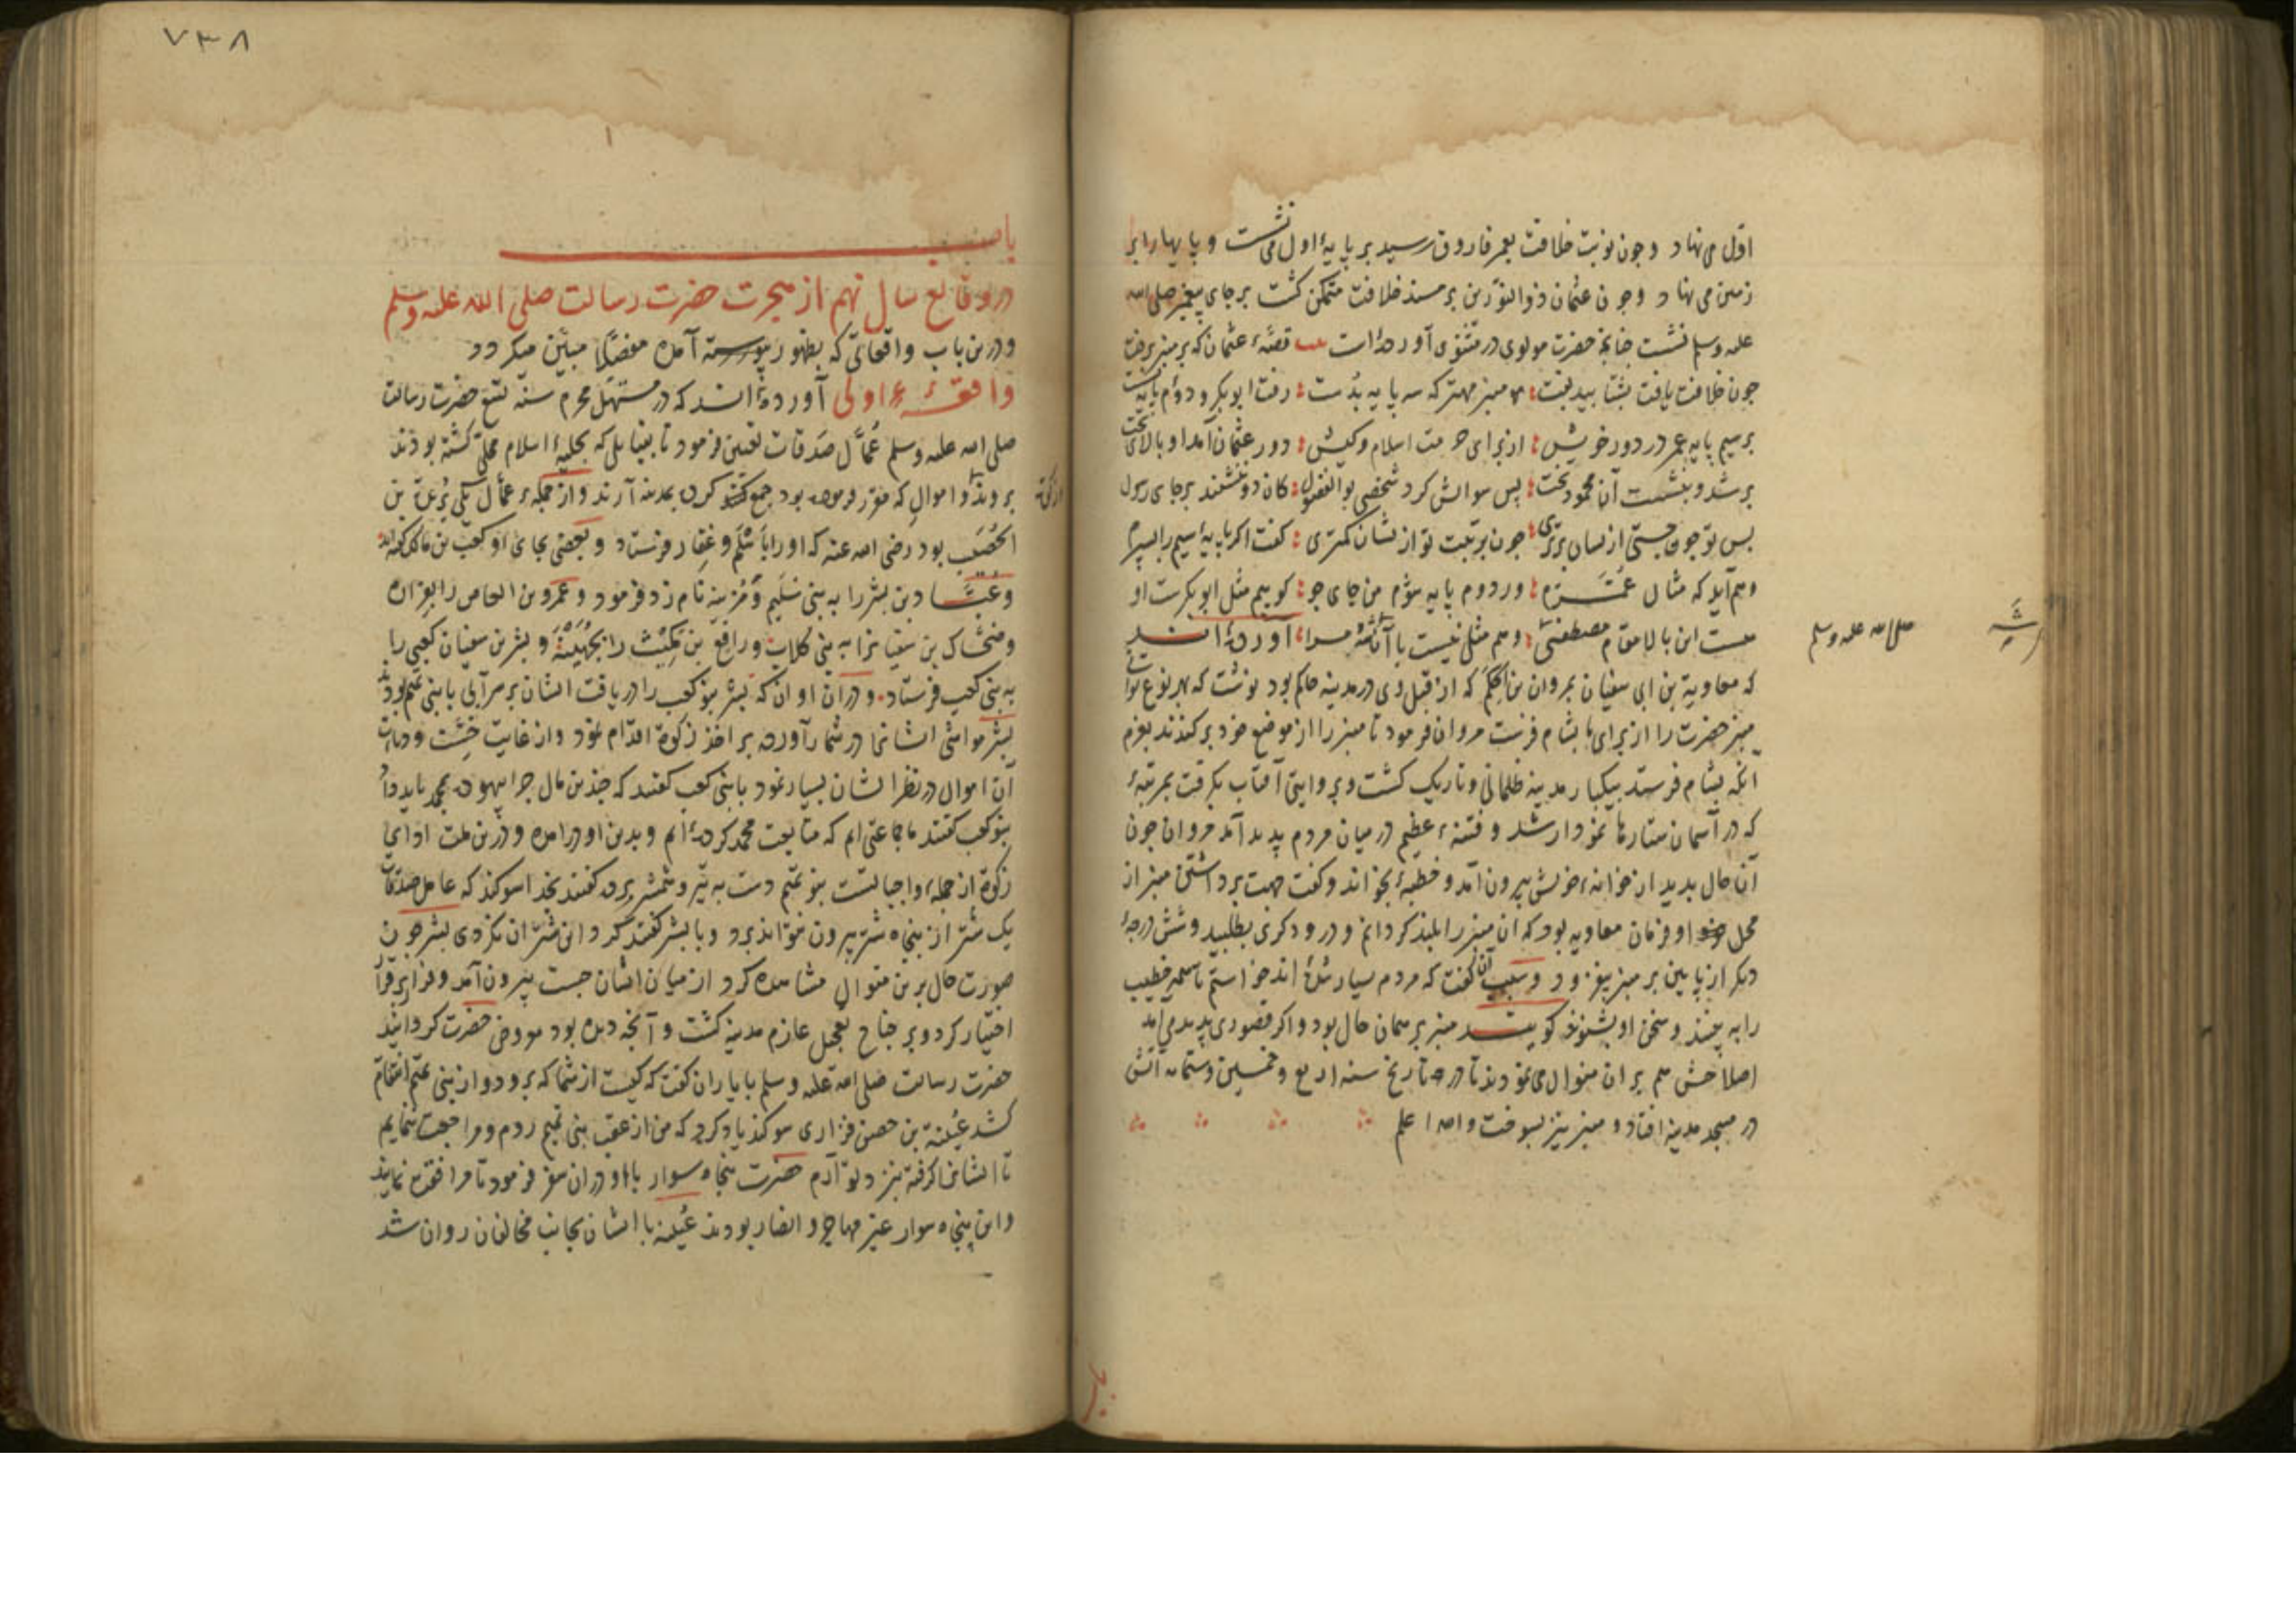 اول می نهاد و چون نوبت خلافت بعمر فاروق رسید بر پایهٔ اول می نشست و پایها را بر
زمین می نهاد و چون عثمان ذوالنورین بر مسند خلافت متمکن کشت بر جای پیغمبر صلی الله
علیه وسلم نشست چنانچه حضرت مولوی در مثنوی آورده است قصهٔ عثمان که بر منبر برفت
چون خلافت یافت بشتابید تفت منبر مهتر که سه پایه بدست رفت ابوبکر و دوم پایه نشست
بر سیم پایه عمر در دور خویش از برای حرمت اسلام وکیش دور عثمان آمد او بالای تخت
بر شد و بنشست آن محمود بخت پس سوالش کرد شخصی بوالفضول کان دو ننشستند بر جای رسول
پس تو چون جستی ازیشان برتری چون برتبت تو ازیشان کمتری کفت اکر پایهٔ سیم را بسپرم
وهم آید که مثال عمرم ور دوم پایه شوم من جای جو کوییم مثل ابوبکرست او
هست این بالا مقام مصطفی وهم مثلی نیست با آن شه مرا آورده اند
صلی الله علیه وسلم
که معاویة بن ابی سفیان بمروان بن الحکم که از قبل وی در مدینه حاکم بود نوشت که بهر نوع توانی
منبر حضرت را از برای ما بشام فرست مروان فرمود تا منبر را از موضع خود بر کنند بعزم
آنکه بشام فرستد بیکبار مدینه ظلمانی و تاریک کشت و بروایتی آفتاب بکرفت بمرتبهٔ
که در آسمان ستارها نمودار شد و فتنهٔ عظیم در میان مردم پدید آمد مروان چون
آن حال بدید از خانهٔ خویش بیرون آمد و خطبهٔ بخواند و کفت جهت برداشتن منبر از
محل او فرمان معاویه بود که آن منبر را بلند کردانم و درودکری بطلبید و شش درجهٔ
دیکر از پایین بر منبر بیفزود و سبب آن کفت که مردم بسیار شده اند خواستم تا همه خطیب
را به بینند و سخن او بشنوند کویند منبر بر همان حال بود و اکر قصوری پدید می آمد
اصلاحش هم بر آن منوال می نمودند تا در تاریخ سنه اربع وخمسین وستمایه آتش
در مسجد مدینه افتاد و منبر نیز بسوخت والله اعلم
٧٣٨
باب
در وقایع سال نهم از هجرت حضرت رسالت صلی الله علیه وسلم
و درین باب واقعاتی که بظهور پیوسته آمده مفصلا مبین میکردد
واقعهٔ اولی آورده اند که در مستهل محرم سنه تسع حضرت رسالت
صلی الله علیه وسلم عمال صدقات تعیین فرمود تا بقبایلی که بحلیهٔ اسلام محلی کشته بودند
بروند و اموال که مقرر فرموده بود جمع کرده بمدینه آرند و از جمله عمال یکی بریدة بن
الحصیب بود رضی الله عنه که او را باسلم وغفار فرستاد و بعضی بجای او کعب بن مالک کفته اند
و عباد بن بشر را به بنی سلیم و مزینه نامزد فرمود و عمرو بن العاص را بفزاره
و ضحاک بن سفیان را به بنی کلاب و رافع بن مکیث را بجهینه و بشر بن سفیان کعبی را
به بنی کعب فرستاد و در آن اوان که بشر بنو کعب را دریافت ایشان بر سر آبی با بنی تمیم بودند
بشر مواشی ایشانرا در شمار آورده بر اخذ زکوة اقدام نمود و از غایت خست و دنائت
آن اموال در نظر ایشان بسیار نمود با بنی کعب کفتند که چندین مال چرا بیهوده بمحمد باید داد
بنو کعب کفتند ما جماعتی ایم که متابعت محمد کرده ایم و بدین او در آمده و درین ملت ادای
زکوة از جملهٔ واجباتست بنو تمیم دست به تیر و شمشیر برده کفتند بخدا سوکند که عامل صدقات
یک شتر از بنجاه شتر بیرون نتواند برد و با بشر کفتند کرد این شتران نکردی بشر چون
صورت حال برین منوال مشاهده کرد از میان ایشان جست بیرون آمد و فرار بر قرار
اختیار کرد و بر جناح تعجیل عازم مدینه کشت و آنچه دیده بود معروض حضرت کردانید
حضرت رسالت صلی الله علیه وسلم با یاران کفت که کیست از شما که برود و از بنی تمیم انتقام
کشد عیینة بن حصن فزاری سوکند یاد کرد که من از عقب بنی تمیم روم و مراجعت ننمایم
تا ایشانرا کرفته بنزد تو آرم حضرت پنجاه سوار با او در آن سفر فرمود تا مرافقت نمایند
و این پنجاه سوار غیر مهاجر و انصار بودند عیینه با ایشان بجانب مخالفان روان شد